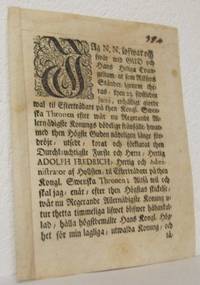 JAg N. N. lofwar och
swär wid GUD och
Hans Helga Evan-
gelium at som Riksens
Ständer igenom theras,
then 23 sistleden
Junii, enhälligt giorde
wal til Efterträdare på then Kongl. Swen-
ska Thronen efter wår nu Regerande
Allernådigste Konungs dödelige frånfälle
med then Högste Guden nådeligen länge för-
dröje, utsedt, korat och förklarat then
Durchleuchtigste Furste och Herre, Hertig
ADOLPH FRIEDRICH, Hertig och Admi-
nistrator af Hollsten, til Efterträdare på then
Kongl. Swenska Thronen; Altså wil och
skal jag, enär, efter then Högstas skickelse,
wår nu Regerande Allernådigste Konung
tur thetta timmeliga lifwet blifwer hädankal-
lad, hålla högstbemälte Hans Kongl. Hög-
het för min lagliga, utwalda Konung, och
så